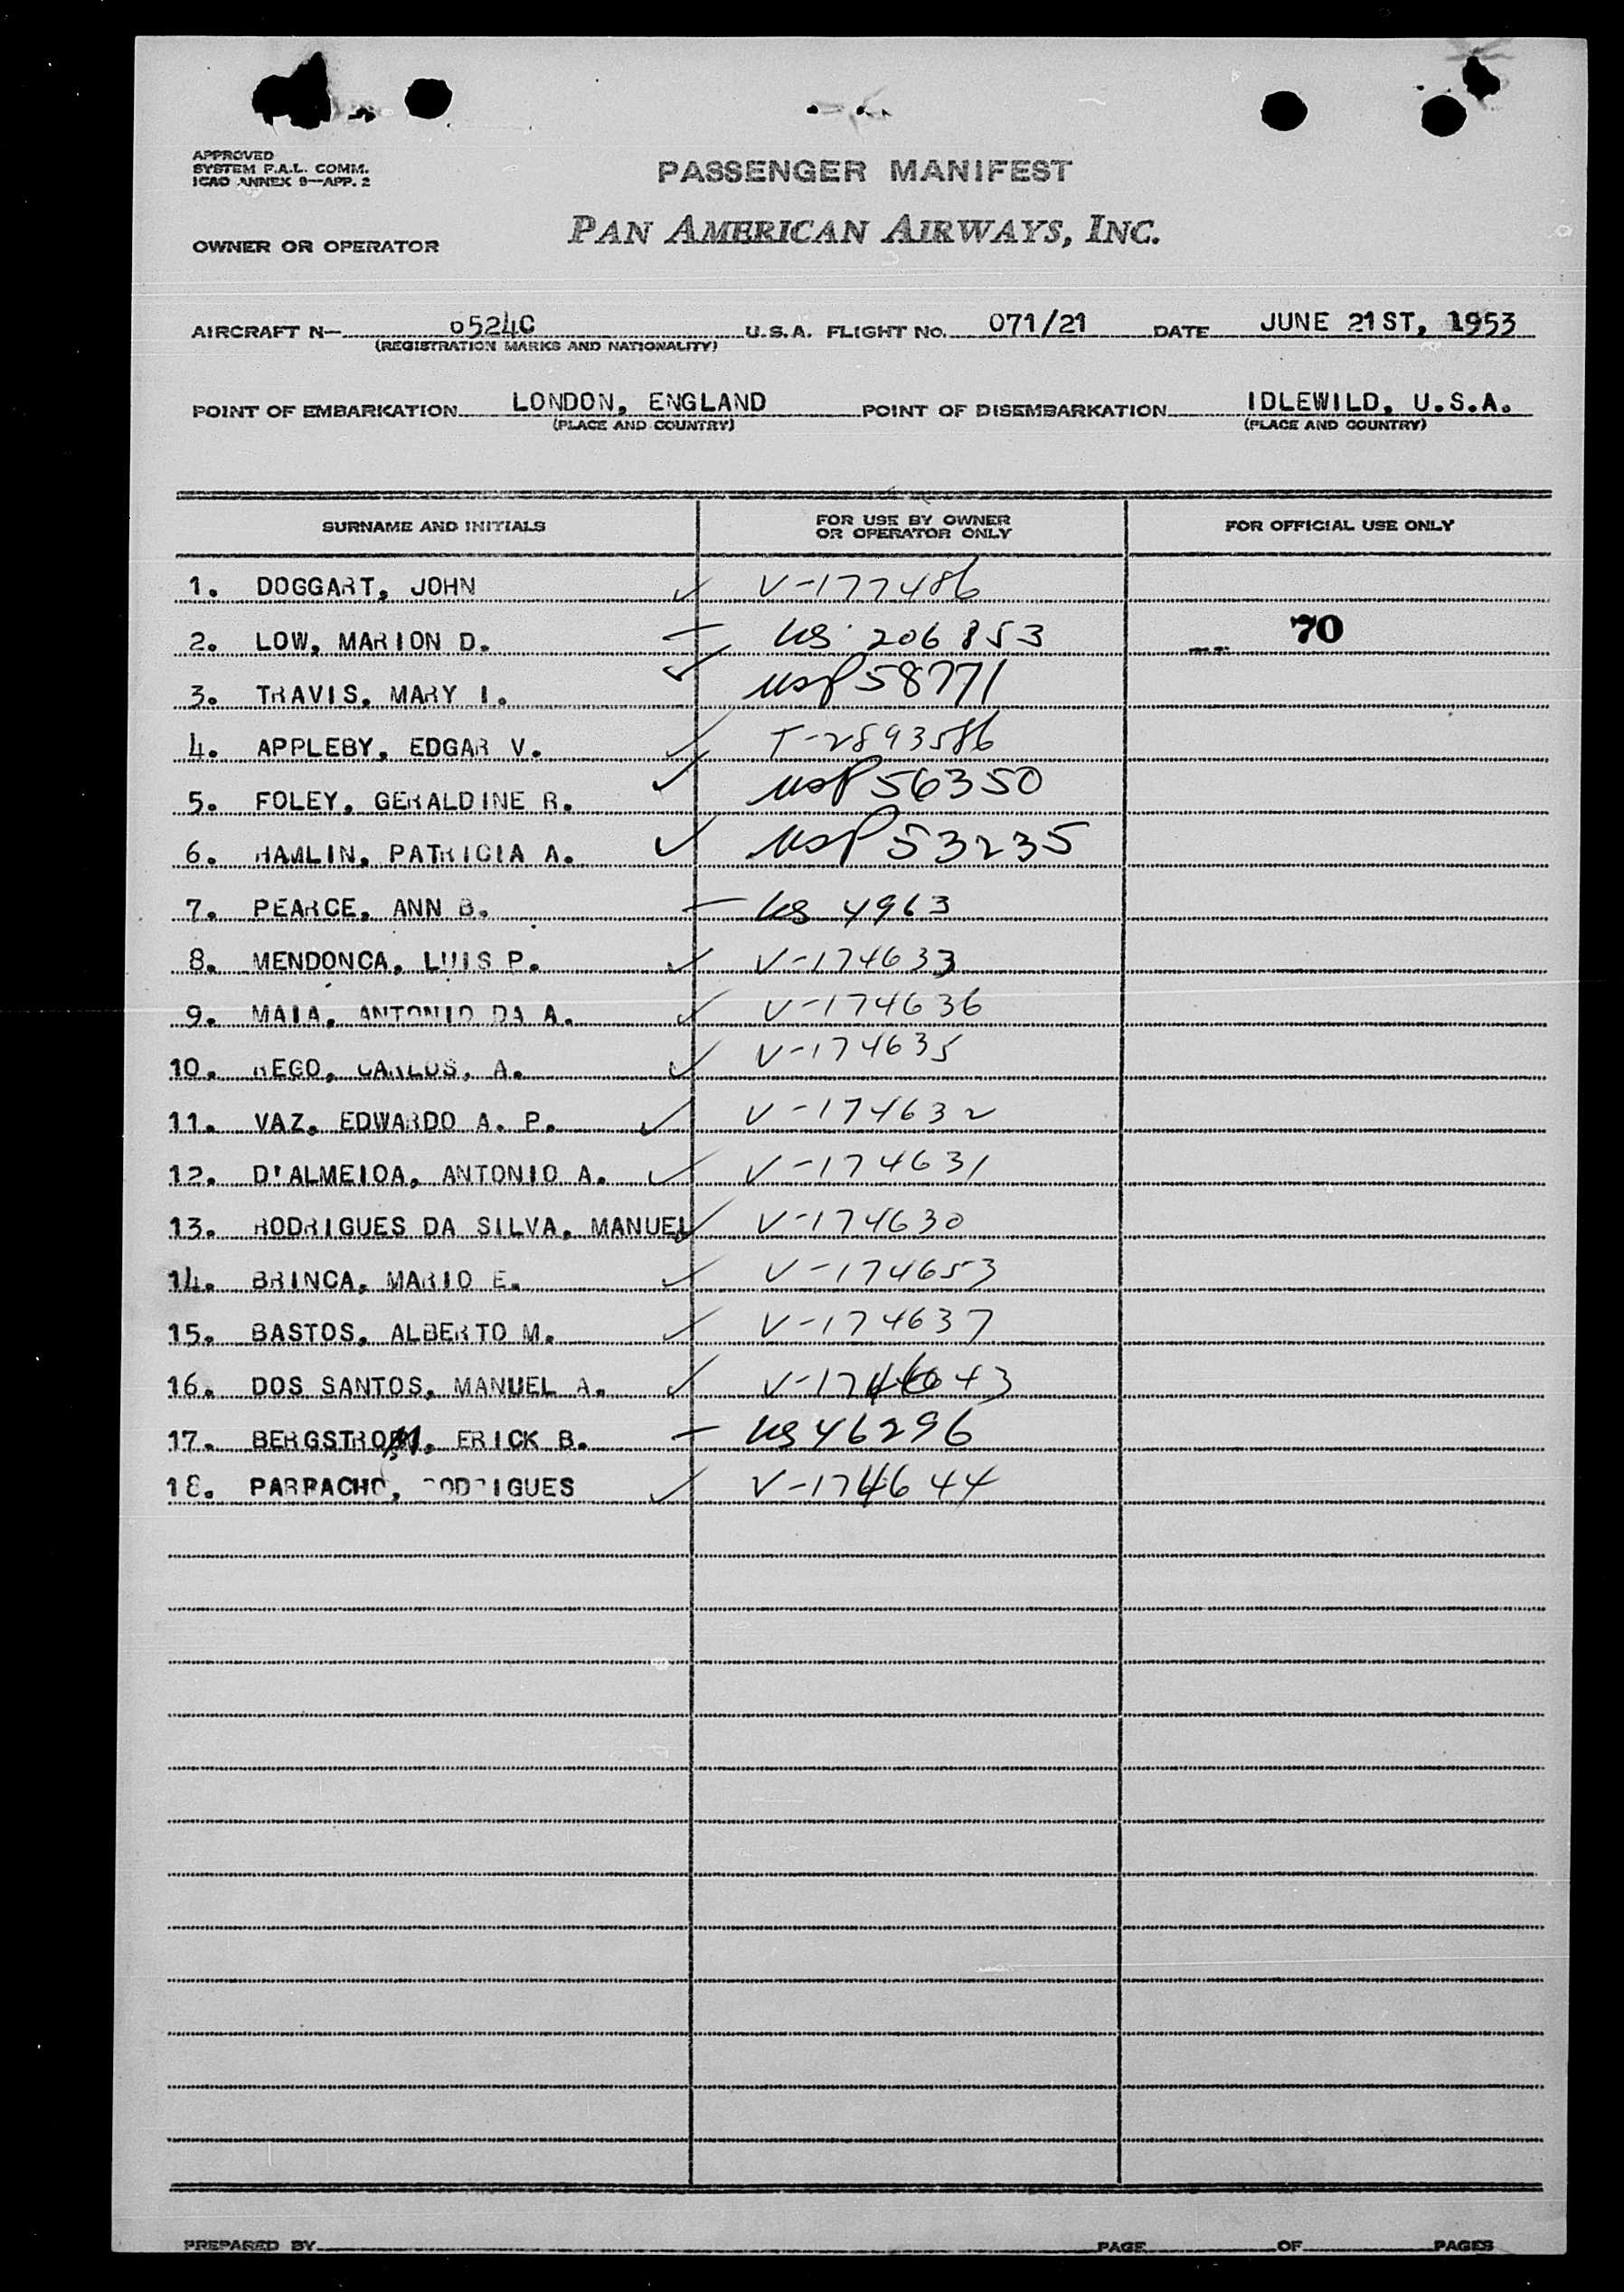 APPROVED
SYSTEM F.A.L. COMM.
ICAO ANNEX 9—APP. 2
PASSENGER MANIFEST
OWNER OR OPERATOR PAN AMERICAN AIRWAYS, INC.
AIRCRAFT N— 6524C U.S.A. FLIGHT NO. 071/21 DATE JUNE 21ST, 1953
(REGISTRATION MARKS AND NATIONALITY)
POINT OF EMBARKATION LONDON, ENGLAND POINT OF DISEMBARKATION IDLEWILD, U.S.A.
(PLACE AND COUNTRY) (PLACE AND COUNTRY)
SURNAME AND INITIALS FOR USE BY OWNER OR OPERATOR ONLY FOR OFFICIAL USE ONLY
1. DOGGART, JOHN ✓ V-177486
2. LOW, MARION D. – US 206853 70
3. TRAVIS, MARY I. ✓ USP 58771
4. APPLEBY, EDGAR V. ✓ T-2893586
5. FOLEY, GERALDINE R. ✓ USP 56350
6. HAMLIN, PATRICIA A. ✓ USP 53235
7. PEARCE, ANN B. – US 4963
8. MENDONCA, LUIS P. ✓ V-174633
9. MAIA, ANTONIO DA A. ✓ V-174636
10. REGO, CARLOS, A. ✓ V-174635
11. VAZ, EDWARDO A. P. ✓ V-174632
12. D'ALMEIDA, ANTONIO A. ✓ V-174631
13. RODRIGUES DA SILVA, MANUEL ✓ V-174630
14. BRINCA, MARIO E. ✓ V-174653
15. BASTOS, ALBERTO M. ✓ V-174637
16. DOS SANTOS, MANUEL A. ✓ V-174643
17. BERGSTROM, ERICK B. – US 46296
18. PARRACHO, RODRIGUES ✓ V-174644
PREPARED BY PAGE OF PAGES